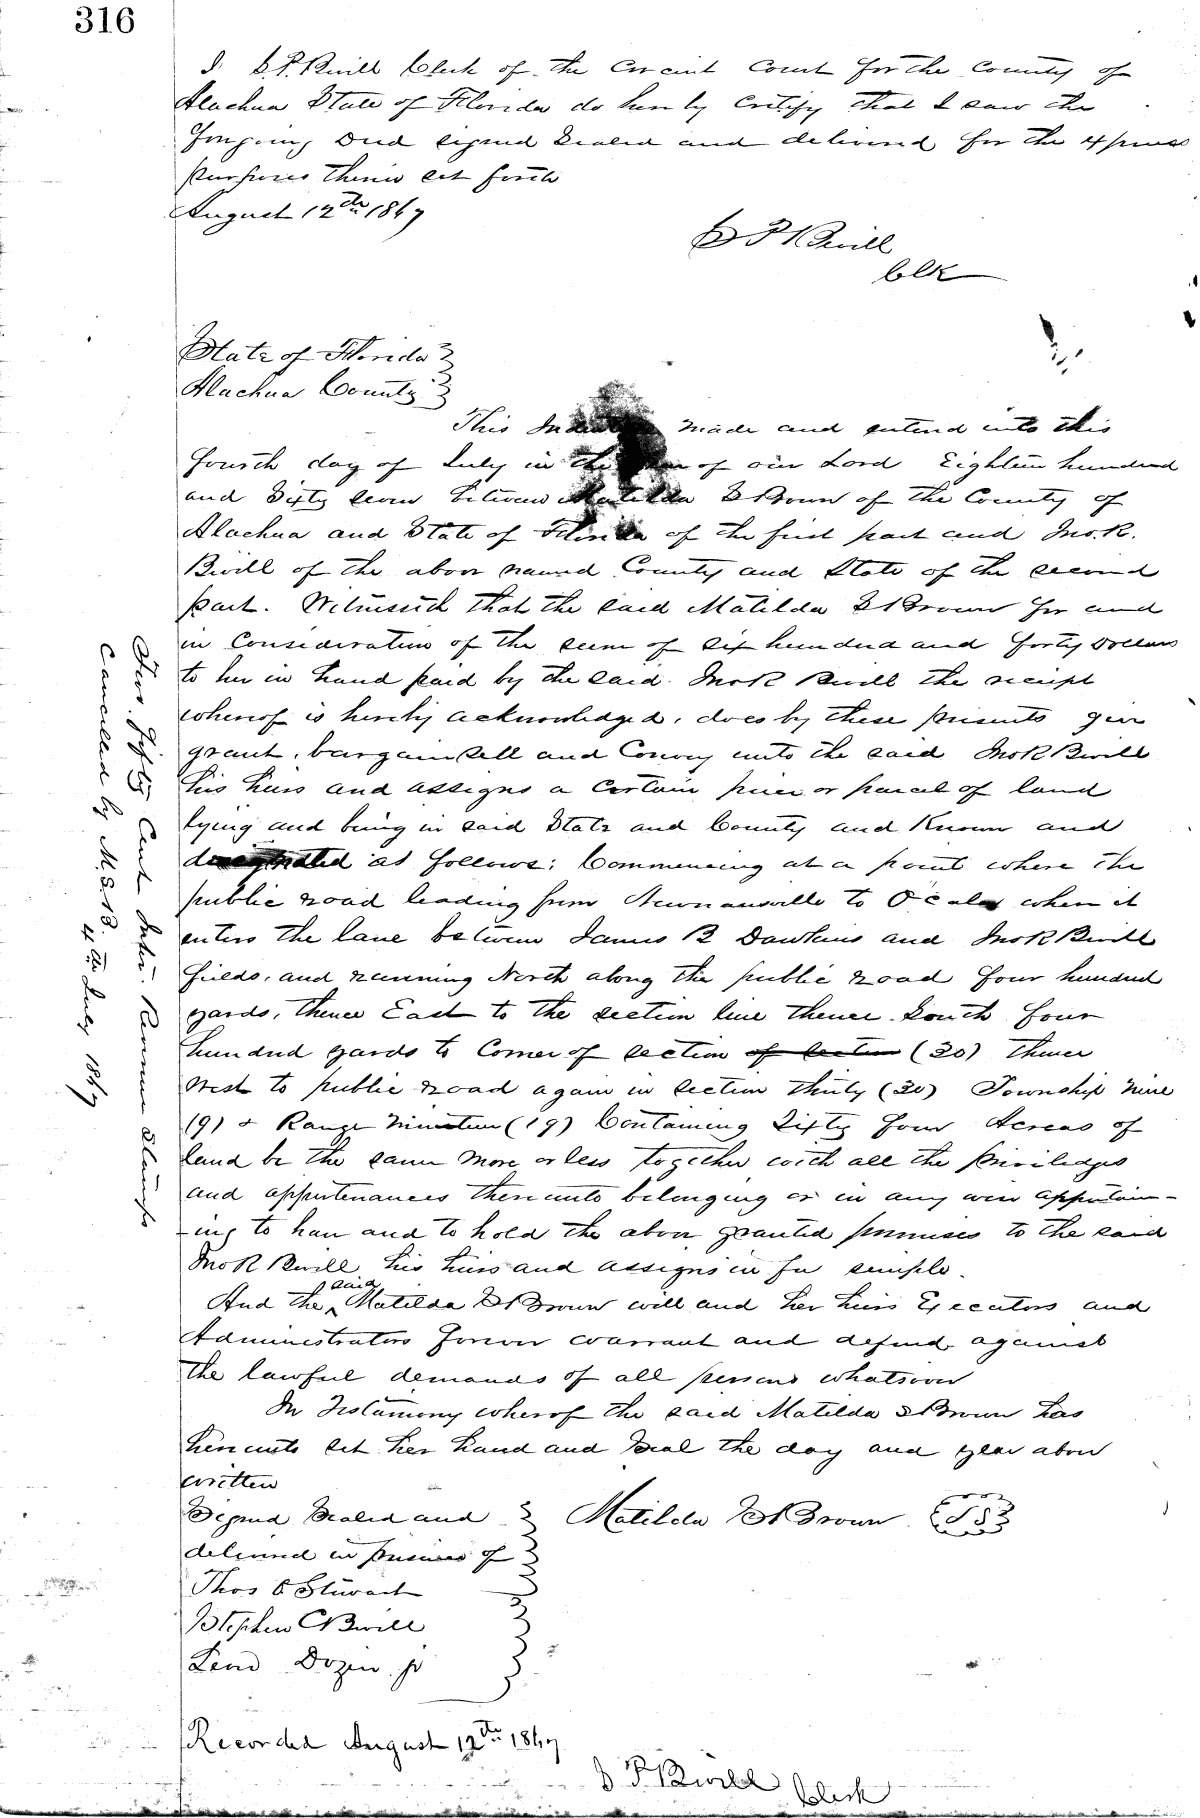 316
I S. P. Bevill Clerk of the Circuit Court for the County of
Alachua State of Florida do hereby certify that I saw the
foregoing Deed signed Sealed and delivered for the express
purposes therein set forth
August 12th 1867
S P Bevill
Clk
State of Florida
Alachua County
This Indenture made and entered into this
fourth day of July in the year of our Lord Eighteen hundred
and Sixty seven between Matilda S Brown of the County of
Alachua and State of Florida of the first part and Jno. R.
Bevill of the above named County and State of the second
part. Witnesseth that the said Matilda S Brown for and
in Consideration of the sum of six hundred and forty Dollars
to her in hand paid by the said Jno R Bevill the receipt
whereof is hereby acknowledged, does by these presents give
grant, bargain sell and Convey unto the said Jno R Bevill
his heirs and assigns a certain piece or parcel of land
lying and being in said State and County and Known and
designated as follows: Commencing at a point where the
public road leading from Newnansville to Ocala when it
enters the lane between James B Dawkins and Jno R Bevill
fields, and running North along the public road four hundred
yards, thence East to the section line thence South four
hundred yards to Corner of section of section (30) thence
West to public road again in section thirty (30) Township nine
(9) & Range nineteen (19) Containing Sixty four Acres of
land be the same more or less together with all the priviledges
and appurtenances thereunto belonging or in any wise appertain-
-ing to have and to hold the above granted premises to the said
Jno R Bevill his heirs and assigns in fee simple.
And the said Matilda S Brown will and her heirs Executors and
Administrators forever warrant and defend against
the lawful demands of all persons whatsoever
In Testamony whereof the said Matilda S Brown has
hereunto set her hand and seal the day and year above
written
Signed Sealed and
delivered in presence of
Matilda S Brown
Thos C Stewart
Stephen C Bevill
Levid Dozier jr
Recorded August 12th 1867
S P Bevill Clerk
Two Fifty Cent Inter. Revenue Stamps
Cancelled by M.S.B.
4th July 1867